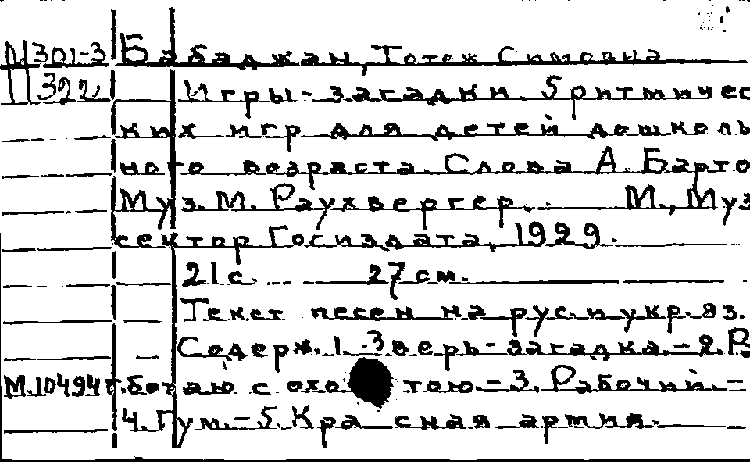 М301-3 Бабаджан, Тотеж Симовна
322 Игры-загадки. 5 ритмичес
ких игр для детей дошколь
ного возраста. Слова А. Барто
Муз. М. Раухвергер. . М., Муз
сектор Госиздата, 1929.
21с. 27см.
Текст песен на рус. и укр. яз.
Содерж. 1. Зверь-загадка.-2. Р
М.10494г. ботаю с охотою.-3. Рабочий.-
4. Гум.-5. Кра сная армия.